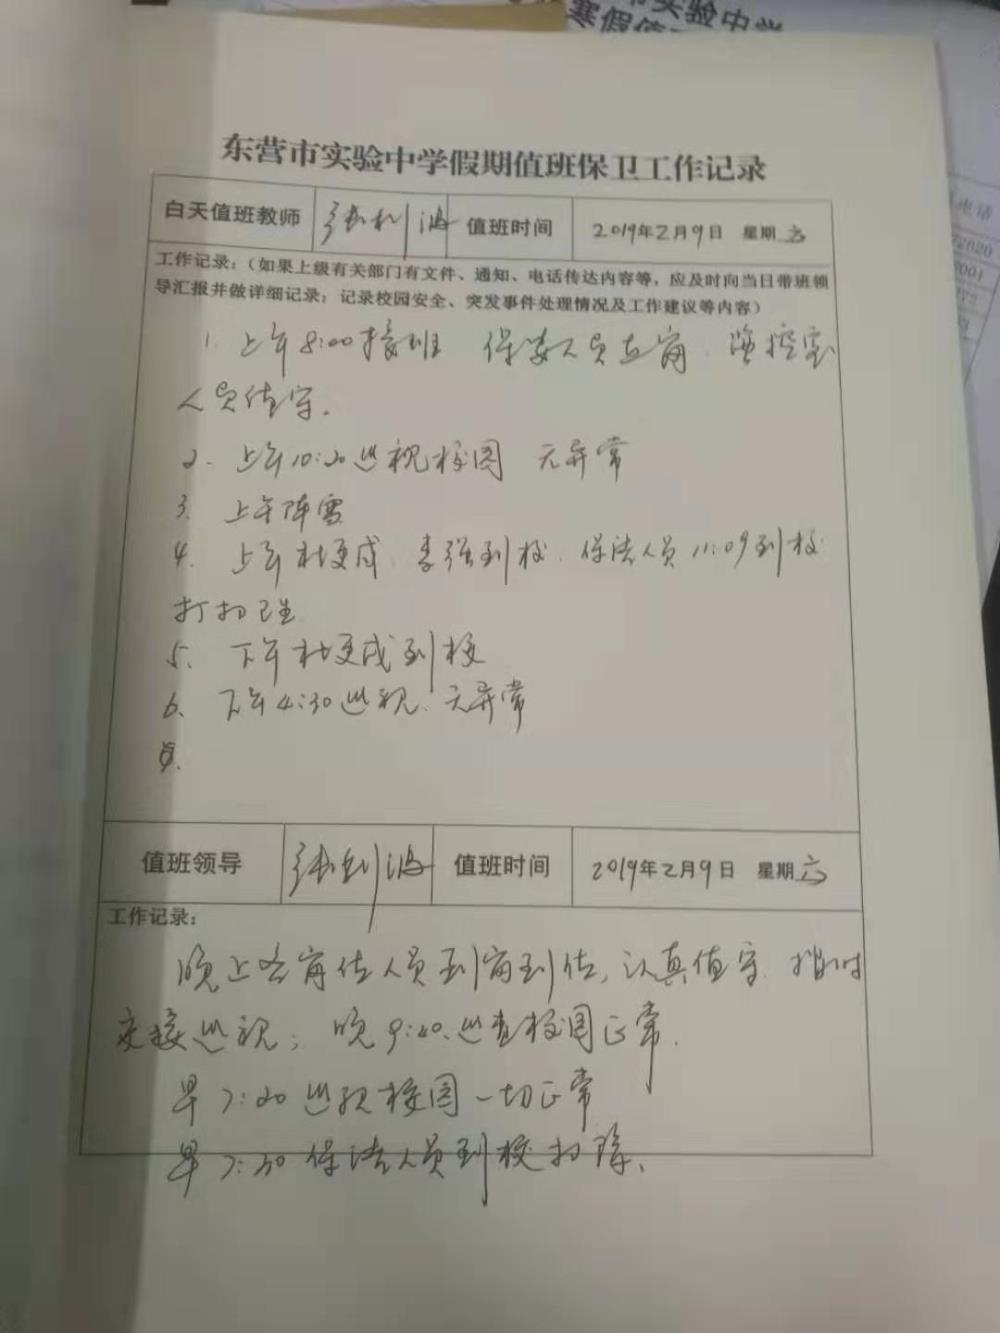 东营市实验中学假期值班保卫工作记录
白天值班教师 张利波 值班时间 2019年2月9日 星期六
工作记录：（如果上级有关部门有文件、通知、电话传达内容等，应及时向当日带班领
导汇报并做详细记录；记录校园安全、突发事件处理情况及工作建议等内容）
1. 上午8:00接班 保安人员在岗. 监控室
人员值守.
2. 上午10:20巡视校园 无异常
3. 上午阵雪
4. 上午杜更成. 李强到校. 保洁人员11:09到校
打扫卫生
5. 下午杜更成到校
6. 下午4:30巡视. 无异常
值班领导 张利波 值班时间 2019年2月9日 星期六
工作记录：
晚上各岗位人员到岗到位, 认真值守. 按时
交接巡视; 晚9:40.巡查校园正常.
早7:20巡视校园一切正常
早7:30保洁人员到校扫除.